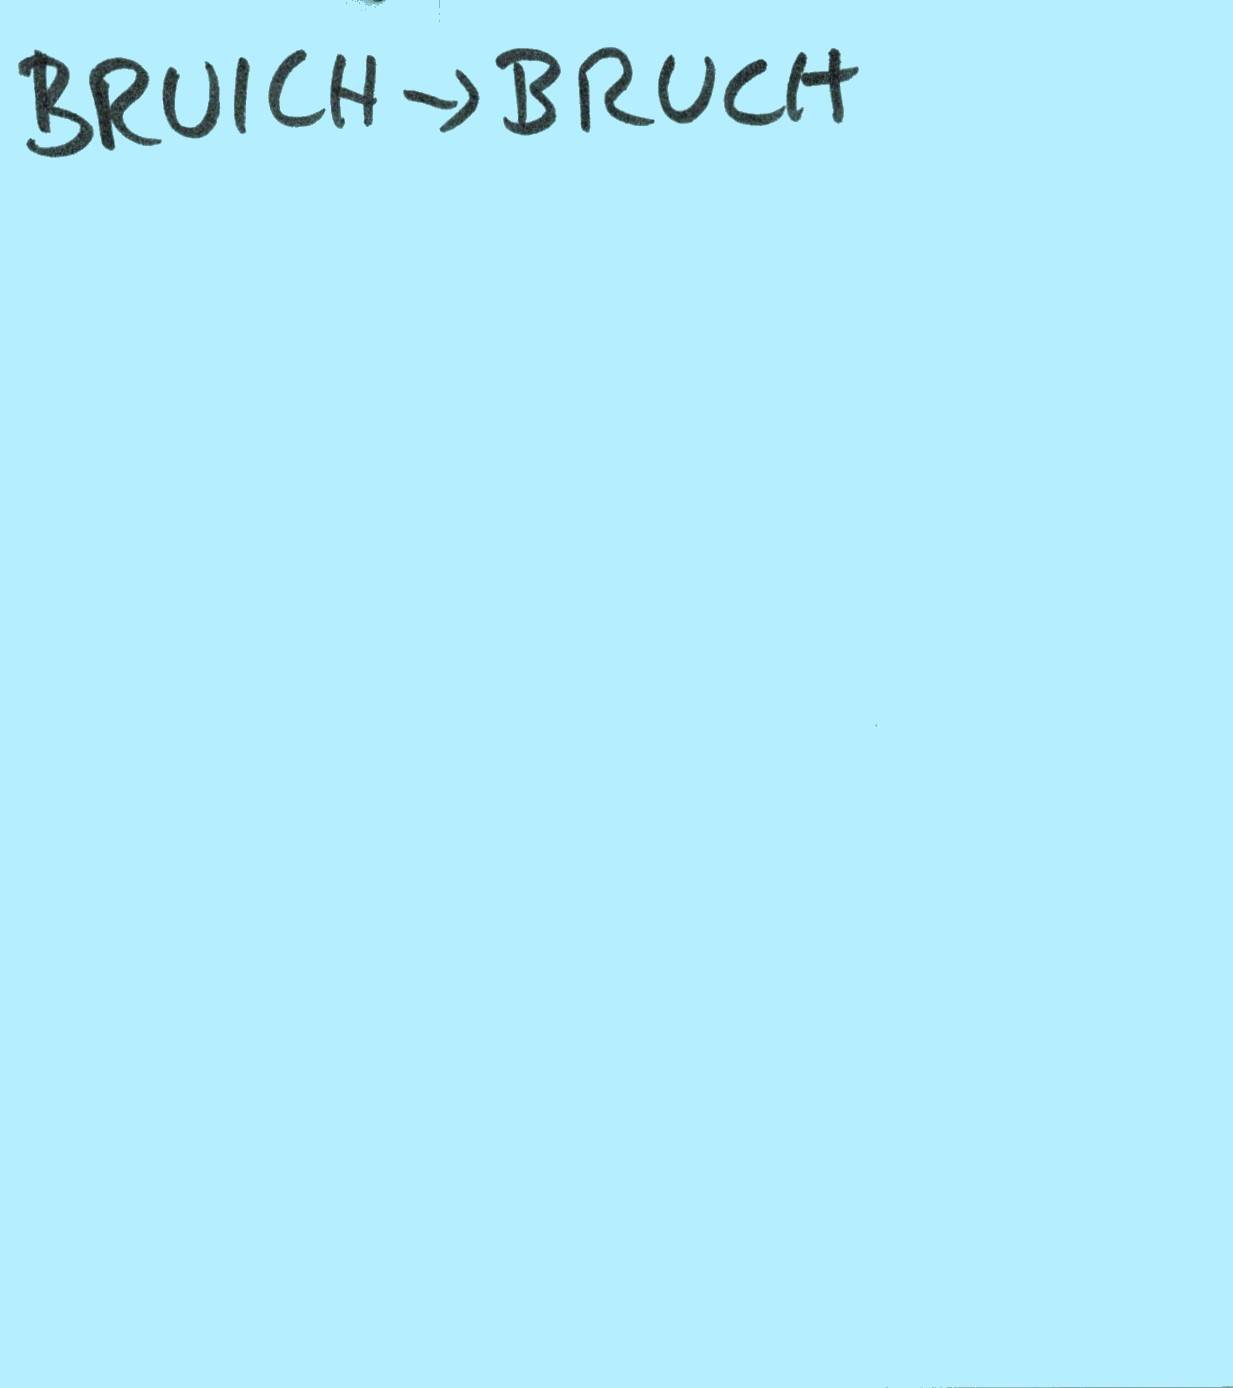 BRUICH → BRUCH